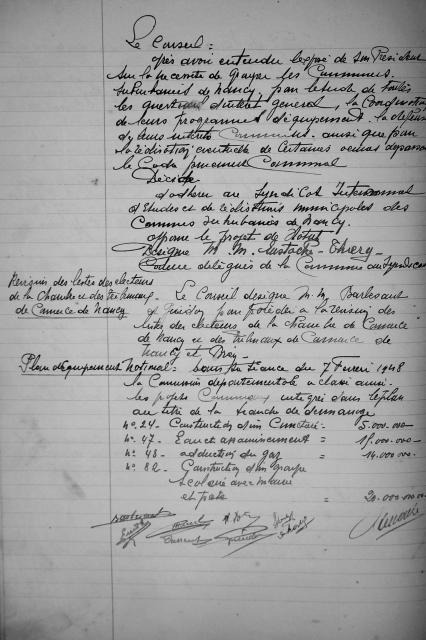 Le Conseil :
après avoir entendu l'exposé de son Président
sur la necessité de grouper les Communes
suburbaines de Nancy, par l'étude de toutes
les questions d'intérêt général, la Coordination
de leurs programmes d'équipement, la défense
de leurs intérêts Communs, ainsi que pour
la réalisation éventuelle de certaines œuvres dépassant
le Cadre purement Communal
Décide
d'adhérer au Syndicat Intercommunal
d'Etudes et de réalisations municipales des
Communes suburbaines de Nancy.
approuve le projet de Statut
Désigne M. M. Eustache - Thiery
Comme délégués de la Commune au Syndicat
Révision des listes des électeurs
de la Chambre et des Tribunaux
de Commerce de Nancy
Le Conseil désigne M. M. Barbesant
et pour procéder à la révision des
listes des électeurs de la Chambre de Commerce
de Nancy et des Tribunaux de Commerce de
Nancy et Briey
Plan d'équipement National : dans sa séance du 7 Février 1948
la Commission départementale a classé ainsi
les projets Communaux intégrés dans le plan
au titre de la tranche de démarrage
N° 24 - Construction d'un Cimetière = 5.000.000
N° 47 - Eau et assainissement = 15.000.000
N° 48 - adduction du gaz = 14.000.000
N° 82 - Construction d'un groupe
scolaire avec mairie
et poste = 20.000.000